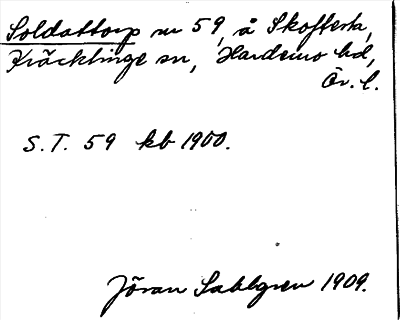 Soldattorp nr 59, å Skofteta,
Kräcklinge sn, Hardemo hd,
Ör. l.
S.T. 59 kb 1900.
Jöran Sahlgren 1909.